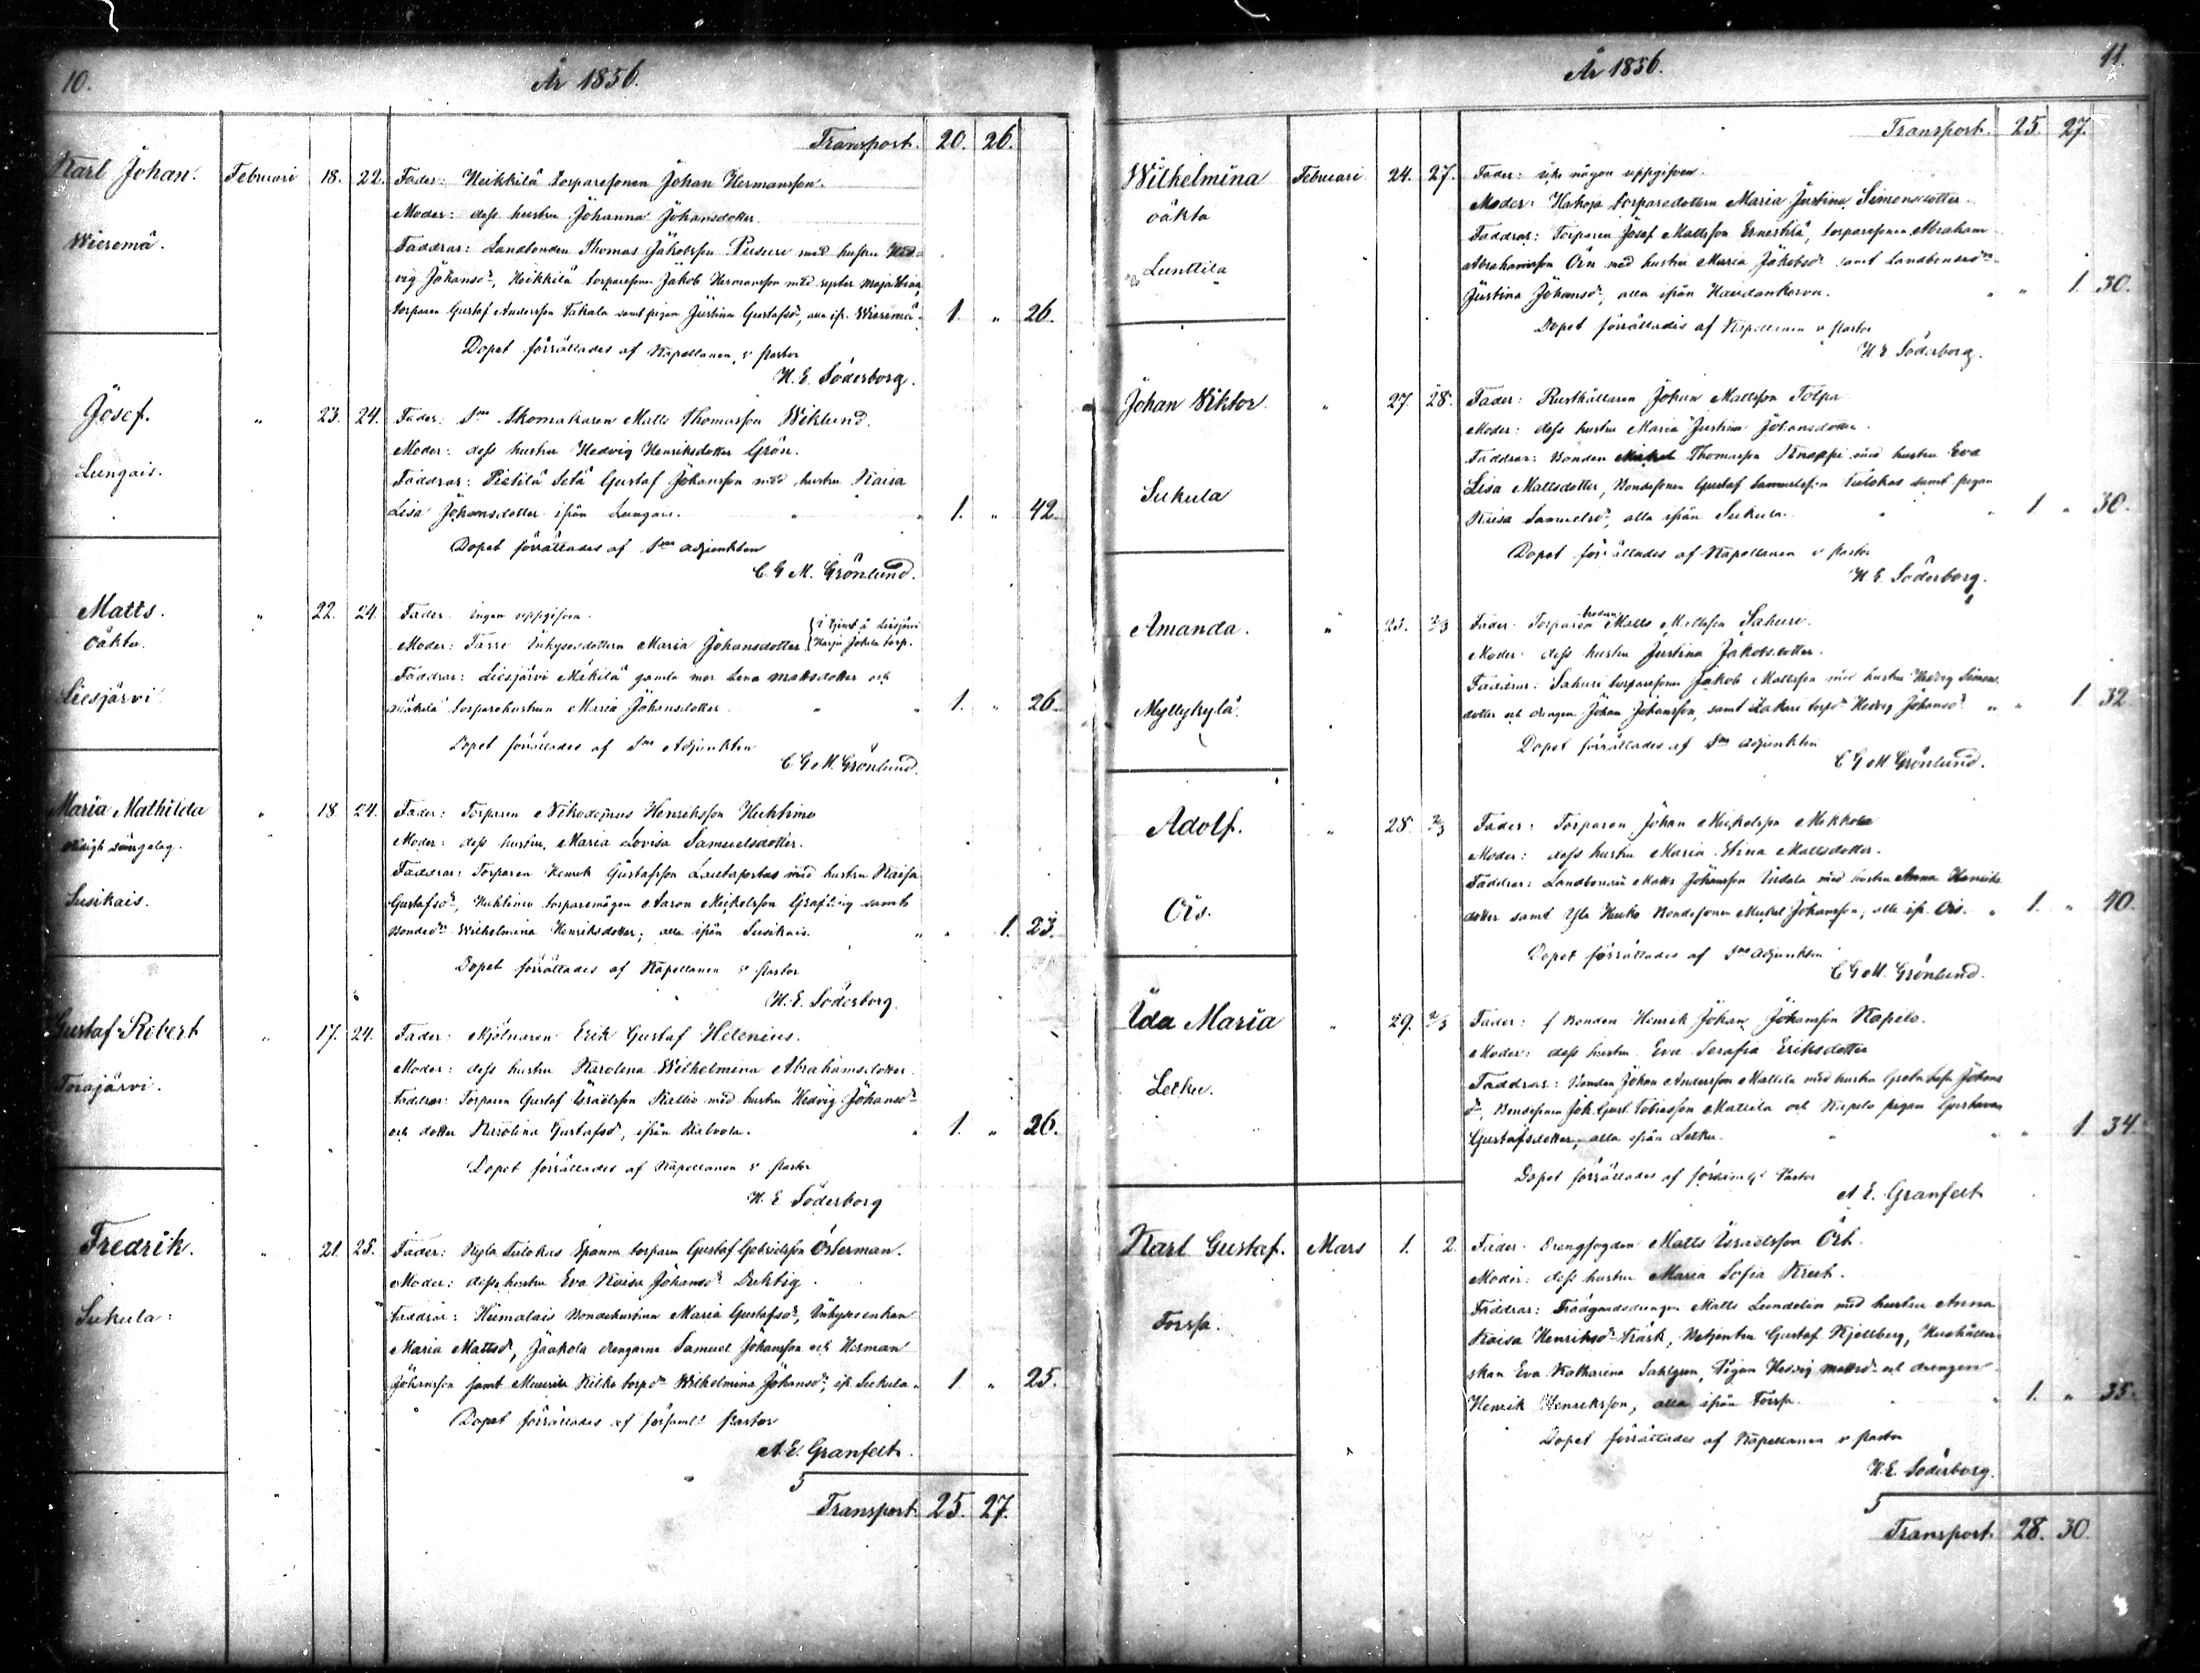 10.
År 1856.
Transport. 20. 26.
Karl Johan. Februari 18. 22. Fader: Heikkilä torparesonen Johan Hermansson.
Moder: dess hustru Johanna Johansdotter
Wieremä. Faddrar: Landbonden Thomas Jakobsson Pusuri med hustru Hed-
vig Johansdr, Heikkilä torparesonen Jakob Hermansson med syster Maja Stina,
torparen Gustaf Andersson Takala samt pigan Justina Gustafsdr, alla ifr. Wieremä. 1. " 26.
Dopet förrättades af Kapellanen, v pastor
H. E. Söderborg.
Josef. " 23. 24. Fader: Sne Skomakaren Matts Thomasson Wiklund.
Moder: dess hustru Hedvig Henriksdotter Grön.
Lungais. Faddrar: Pietilä Gustaf Johansson med hustru Kaisa
Lisa Johansdotter ifrån Lungais. " " 1. " 42.
Dopet förrättades af Sne adjunkten
C. G. M. Grönlund.
Matts. " 22. 24. Fader: ingen uppgifven.
oäkta. Moder: Inhysesdottern Maria Johansdotter
Liesjärvi Faddrar: Liesjärvi Mäkilä gamla mor Lena Mattsdotter och
Mäkilä torparehustrun Maria Johansdotter. " " 1. " 26.
Dopet förrättades af Sne Adjunkten
C G M. Grönlund.
Maria Mathilda " 18. 24. Fader: Torparen Nikodemus Henriksson Huhtimo
Moder: dess hustru, Maria Lovisa Samuelsdotter.
Susikais. Faddrar: Torparen Henrik Gustafsson Lautaportas med hustru Kaisa
Gustafsdr, Huhtimo torparemågen Aaron Mickelsson samt
Bondedr Wilhelmina Henriksdotter; alla ifrån Susikais. " " 1. 23.
Dopet förrättades af Kapellanen v pastor
H. E. Söderborg.
Gustaf Robert " 17. 24. Fader: Mjölnaren Erik Gustaf Helenius.
Moder: dess hustru Karolina Wilhelmina Abrahamsdotter.
Torajärvi. Faddrar: Torparen Gustaf Israelsson Kallio med hustru Hedvig Johansdr
och dotter Karolina Gustafsdr, ifrån Kalvola. " 1. " 26.
Dopet förrättades af Kapellanen v pastor
H. E. Söderborg
Fredrik. " 21. 25. Fader: torparen Gustaf Gabrielsson Österman.
Moder: dess hustru Eva Kaisa Johansdr Duktig.
Sukula: Faddrar: Humalais Bondehustrun Maria Gustafsdr, Inhysesenkan
Maria Mattsdr, Jaakola drengarne Samuel Johansson och Herman
Johansson samt torpdr Wilhelmina Johansdr; ifr. Sukula. 1 " 25.
Dopet förrättades af församl. Pastor
A. E. Granfelt.
5
Transport. 25. 27.
11.
År 1856.
Transport. 25. 27.
Wilhelmina Februari 24. 27. Fader: icke någon uppgifven.
oäkta Moder: Hakoja torparedottern Maria Justina Simonsdotter.
Faddrar: Torparen Josef Mattsson Ernestilä, torparesonen Abraham
Lunttila Abrahamsson Örn med hustru Maria Jakobsdr samt landbondedr
Justina Johansdr, alla ifrån Haudankorva. " " 1. 30.
Dopet förrättades af Kapellanen v pastor
H E Söderborg.
Johan Wiktor. " 27. 28. Fader: Rusthållaren Johan Mattsson Tolpa
Moder: dess hustru Maria Justina Johansdotter.
Faddrar: Bonden Thomasson Knaappi med hustru Eva
Sukula Lisa Mattsdotter, Bondesonen Gustaf Samuelsson Tulokas samt pigan
Kaisa Samuelsdr, alla ifrån Sukula. " " 1 " 30.
Dopet förrättades af Kapellanen v pastor
H. E. Söderborg.
Amanda. " 23. 2/3 Fader: Torparebrodern Matts Mattsson Sahuri.
Moder: dess hustru Justina Jakobsdotter.
Myllykylä. Faddrar: Sahuri torparesonen Jakob Mattsson med hustru Hedvig Simons-
dotter och drengen Johan Johansson, samt torpdr Hedvig Johansdr " " 1 32
Dopet förrättades af Sne adjunkten
C G M Grönlund.
Adolf. " 28. 2/3 Fader: Torparen Johan Mickelsson Mokkola
Moder: dess hustru Maria Stina Mattsdotter.
Faddrar: Landbonden Matts Johansson Uudela med hustru Anna Henriks-
Ois. dotter samt Bondesonen Mickel Johansson; alla ifr. Ois. " 1. " 40.
Dopet förrättades af Sne adjunkten
C G M. Grönlund.
Ida Maria " 29. 2/3 Fader: f Bonden Henrik Johan Johansson Kopelo.
Moder: dess hustru Eva Serafia Eriksdotter
Letku. Faddrar: Bonden Johan Andersson Mattila med hustru Greta Johans-
dr, Bondesonen Joh. Gust. Tobiasson Mattila och Kopelo pigan Gustava
Gustafsdotter; alla ifrån Letku. " " " 1 34
Dopet förrättades af församl. Pastor
A E. Granfelt
Karl Gustaf. Mars 1. 2. Fader: Drengfogden Matts Israelsson Ört.
Moder: dess hustru Maria Sofia Krut.
Forssa. Faddrar: Trädgårdsdrengen Matts Lundelin med hustru Anna
Kaisa Henriksdr Träsk, Betjenten Gustaf Kjellberg, Hushåller-
skan Eva Katharina Sahlgren, Pigan Hedvig Mattsdr och drengen
Henrik Henriksson, alla ifrån Forssa. " " 1. " 35.
Dopet förrättades af Kapellanen v pastor
H. E. Söderborg.
5
Transport. 28. 30.